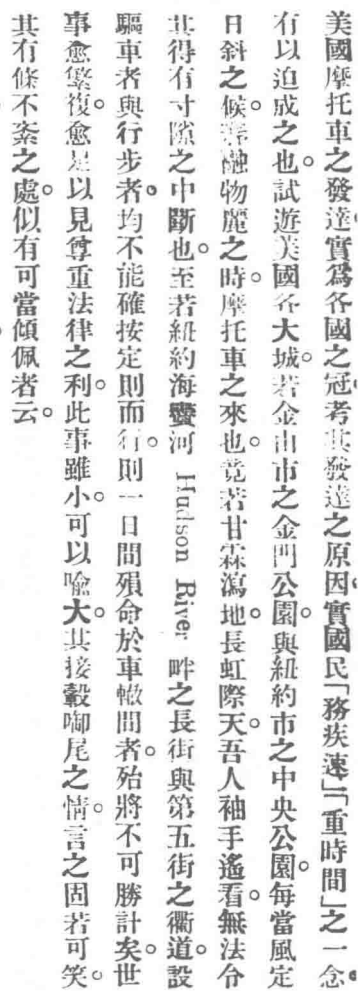 美國摩托車之發達實爲各國之冠考其發達之原因。實國民「務疾速」「重時間」之一念。
有以迫成之也。試遊美國各大城。若金山市之金門公園。與紐約市之中央公園。每當風定
日斜之候。春融物麗之時。摩托車之來也。竟若甘霖瀉地。長虹際天。吾人袖手遙看。無法令
其得有寸隙之中斷也。至若紐約海鹽河 Hudson River 畔之長街與第五街之衢道。設
驅車者與行步者。均不能確按定則而行。則一日間殞命於車轍間者。殆將不可勝計矣。世
事愈繁複。愈足以見尊重法律之利。此事雖小。可以喩大。其接轂啣尾之情。言之固若可笑。
其有條不紊之處。似有可當傾佩者云。